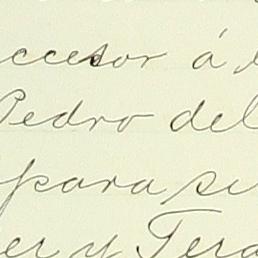 ccesor á
Pedro del
para se
er y Tera